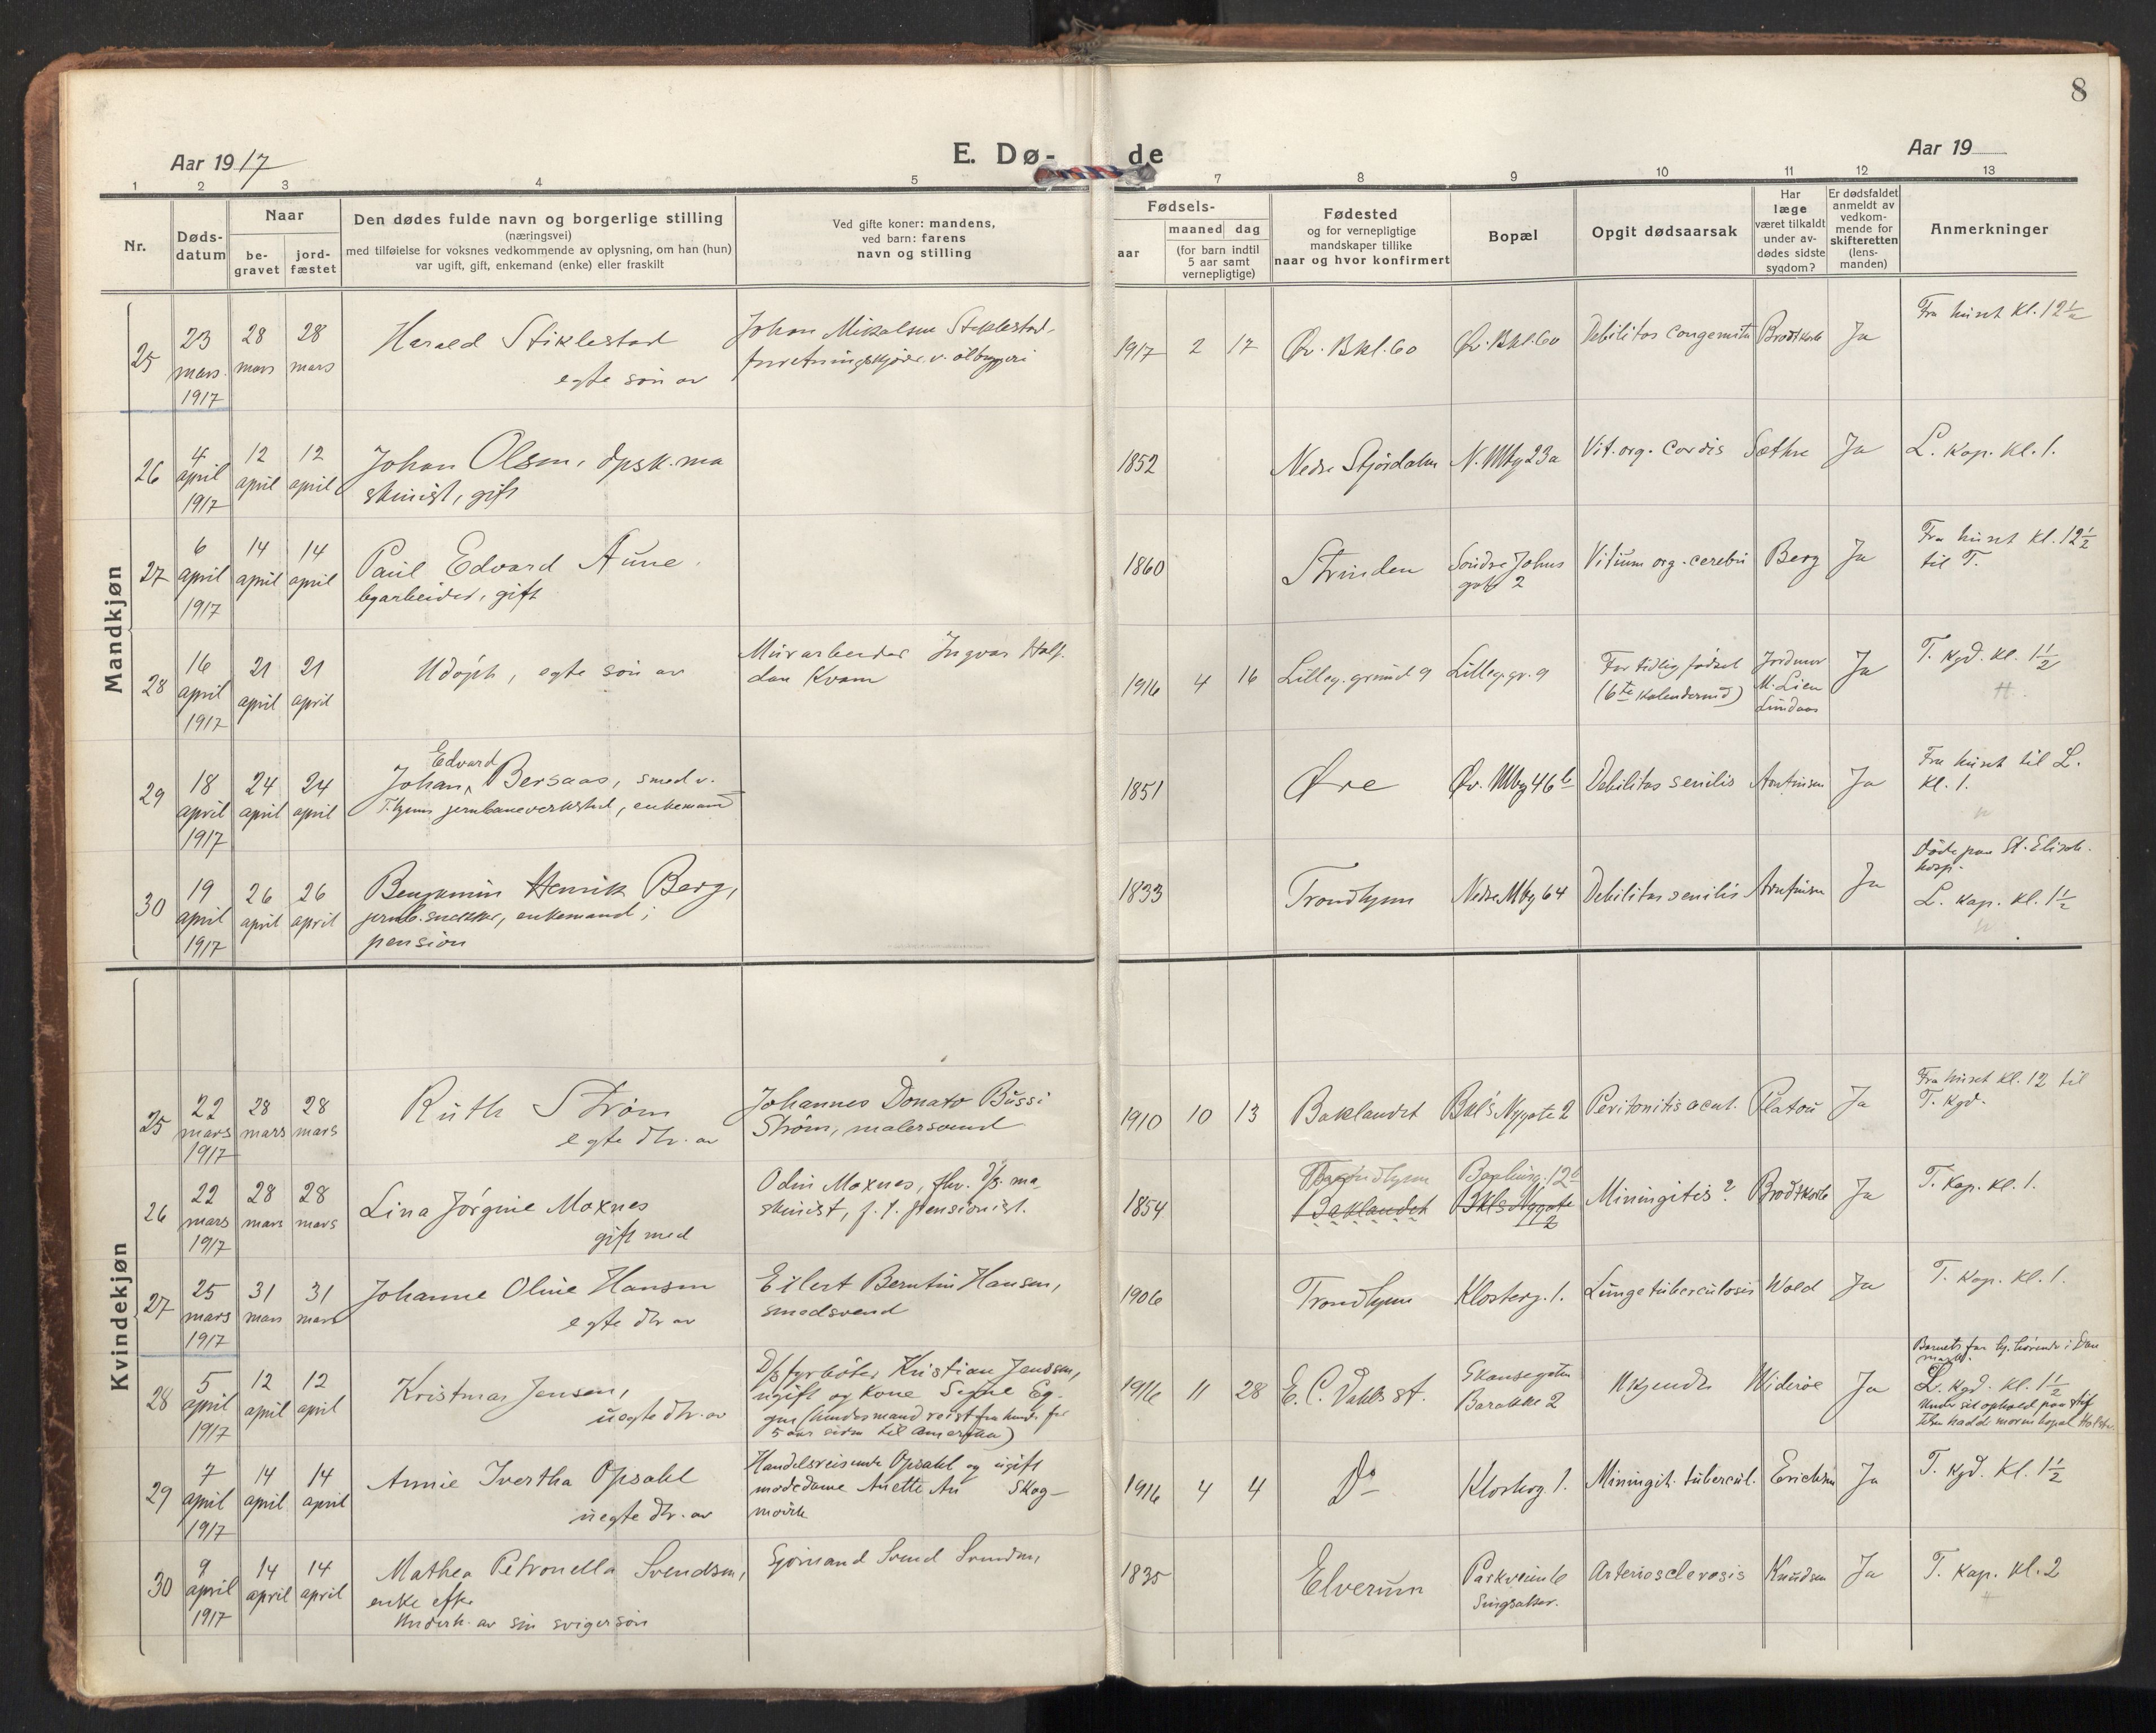 8
Aar 1917
E. Dø- de
Aar 19
1 2 3 4 5 7 8 9 10 11 12 13
Nr.
Døds-
datum
Naar
be-
gravet
jord-
fæstet
Den dødes fulde navn og borgerlige stilling
(næringsvei)
med tilføielse for voksnes vedkommende av oplysning, om han (hun)
var ugift, gift, enkemand (enke) eller fraskilt
Ved gifte koner: mandens,
ved barn: farens
navn og stilling
Fødsels-
aar
maaned dag
(for barn indtil
5 aar samt
vernepligtige)
Fødested
og for vernepligtige
mandskaper tillike
naar og hvor konfirmert
Bopæl
Opgit dødsaarsak
Har
læge
været tilkaldt
under av-
dødes sidste
sygdom?
Er dødsfaldet
anmeldt av
vedkom-
mende for
skifteretten
(lens-
manden)
Anmerkninger
Mandkjøn
25
23
mars
1917
28
mars
28
mars
Harald Stiklestad
egte søn av
Johan Mikalsen Stiklestad,
forretningskjører v. ølbryggeri
1917 2 17
Øv. Bkl. 60
Øv. Bkl. 60
Debilitas congenita
Brodtkorb
Ja
Fra huset kl. 12½
26
4
april
1917
12
april
12
april
Johan Olsen, dpsk.ma
skinist, gift
1852
Nedre Stjørdalen
N. Mbg 23a
Vit. org. cordis
Sæthre
Ja
L. kap. kl. 1.
27
6
april
1917
14
april
14
april
Paul Edvard Aune
bgarbeider, gift
1860
Strinden
Søndre Johns
gate 2
Vitium org. cerebri
Berg
Ja
Fra huset kl. 12½
til T.
28
16
april
1917
21
april
21
april
Udøpt, egte søn av
Murarbeider Ingvar Half-
dan Kvam
1916 4 16
Lilleg. grund 9
Lilleg.gr. 9
For tidlig fødsel
(6te kalendermd)
Jordmor
M. Lien
Lundaas
Ja
T. kgd. kl. 1½
29
18
april
1917
24
april
24
april
Edvard
Johan Bersaas, smed v.
T.hjems jernbaneverksted, enkemand
1851
Øre
Øv. Mbg 46b
Debilitas senilis
Arntsen
Ja
Fra huset til L.
kl. 1.
30
19
april
1917
26
april
26
april
Benjamin Henrik Berg,
jernb.snekker, enkemand;
pension
1833
Trondhjem
Nedre Mbg 64
Debilitas senilis
Ja
Døde paa St. Elisab.
hosp.
L. kap. kl. 1½
Kvindekjøn
25
22
mars
1917
28
mars
28
mars
Ruth Strøm
egte dtr. av
Johannes Donato Bussi
Strøm, malersvend
1910 10 13
Baklandet
Bkl's Nygate 2
Peritonitis acut.
Platou
Ja
Fra huset kl. 12 til
T. kgd.
26
22
mars
1917
28
mars
28
mars
Lina Jørgine Moxnes
gift med
Odin Moxnes, fhv. d/s. ma-
skinist, f. t. pensionist.
1854
Trondhjem
Baklandet
Bkls Nygate
2
Miningitis?
Brodtkorb
Ja
T. kap. kl. 1.
27
25
mars
1917
31
mars
31
mars
Johanne Oline Hansen
egte dtr av
Eilert Berntin Hansen,
smedsvend
1906
Trondhjem
Klosterg. 1.
Lungetuberculosis
Wold
Ja
T. kap. kl. 1.
28
5
april
1917
12
april
12
april
Kristmar Jensen,
uegte dtr. av
D/s fyrbøter Kristian Jenssen,
ugift og kone Signe Eg-
gen (hendes mand reist fra hende for
5 aar siden til Amerika)
1916 11 28
E. C. Dahls st.
Skansegaten
Barakke 2
Ukjendt
Widerøe
Ja
Barnets far hj.hørende i Dan
mark.
L. kgd. kl. 1½
Under sit ophold paa Stif
telsen hadde moren bopæl
29
7
april
1917
14
april
14
april
Annie Ivertha Opsahl
uegte dtr. av
Handelsreisende Opsahl og ugift
motedame Anette An Skog-
mo
1916 4 4
Do
Klosterg 1.
Miningit. tubercul.
Erichsen
Ja
T. kgd. kl. 1½
30
9
april
1917
14
april
14
april
Mathea Petronella Svendsen,
enke efter
Underh. av sin svigersøn
Svend Svendsen,
1835
Elverum
Parkveien 6
Singsaker.
Arteriosclerosis
Knudsen
Ja
T. kap. kl. 2